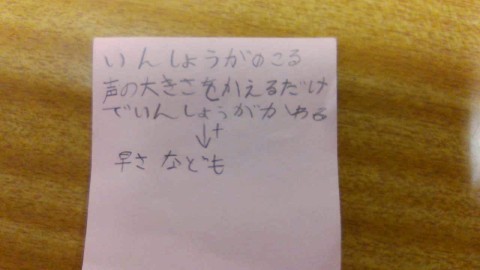 いんしょうがのこる
声の大きさをかえるだけ
でいんしょうがかわる
↓+
早さなども